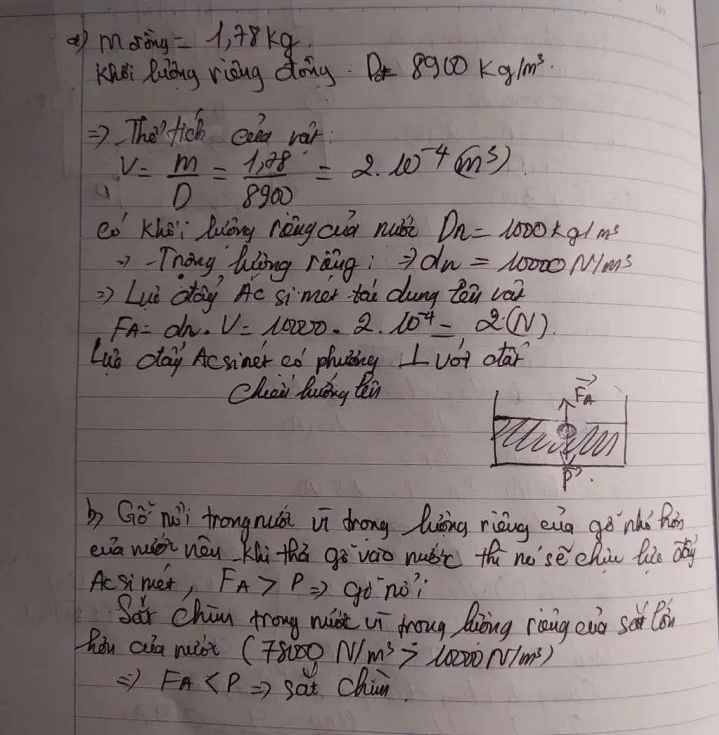 a) m đồng = 1,78 kg.
Khối lượng riêng đồng. D = 8900 kg/m³.
=> Thể tích của vật:
V = m/D = 1,78/8900 = 2.10⁻⁴ (m³).
Có khối lượng riêng của nước Dn = 1000 kg/m³
=> Trọng lượng riêng: => dn = 10000 N/m³
=> Lực đẩy Ac si mét tác dụng lên vật
FA = dn.V = 10000.2.10⁻⁴ = 2 (N).
Lực đẩy Acsimét có phương ⊥ với đất
Chiều hướng lên
FA
P
b) Gỗ nổi trong nước vì trong lượng riêng của gỗ nhỏ hơn
của nước nên khi thả gỗ vào nước thì nó sẽ chịu lực đẩy
Acsimét, FA > P => gỗ nổi
Sắt chìm trong nước vì trong lượng riêng của sắt lớn
hơn của nước (78000 N/m³ > 10000 N/m³)
=> FA < P => sắt chìm.